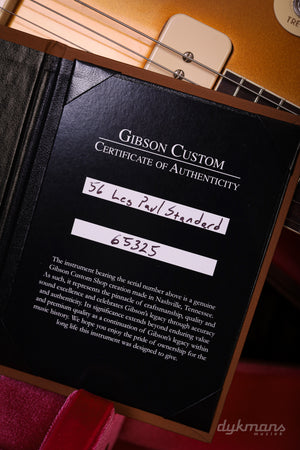 TRE
GIBSON CUSTOM
CERTIFICATE OF AUTHENTICITY
56 Les Paul Standard
65325
The instrument bearing the serial number above is a genuine
Gibson Custom Shop creation made in Nashville, Tennessee.
As such, it represents the pinnacle of craftsmanship, quality and
sound excellence and celebrates Gibson's legacy through accuracy
and authenticity. Its significance extends beyond enduring value
and premium quality as a continuation of Gibson's legacy within
music history. We hope you enjoy the pride of ownership for the
long life this instrument was designed to give.
dykmans
muziek